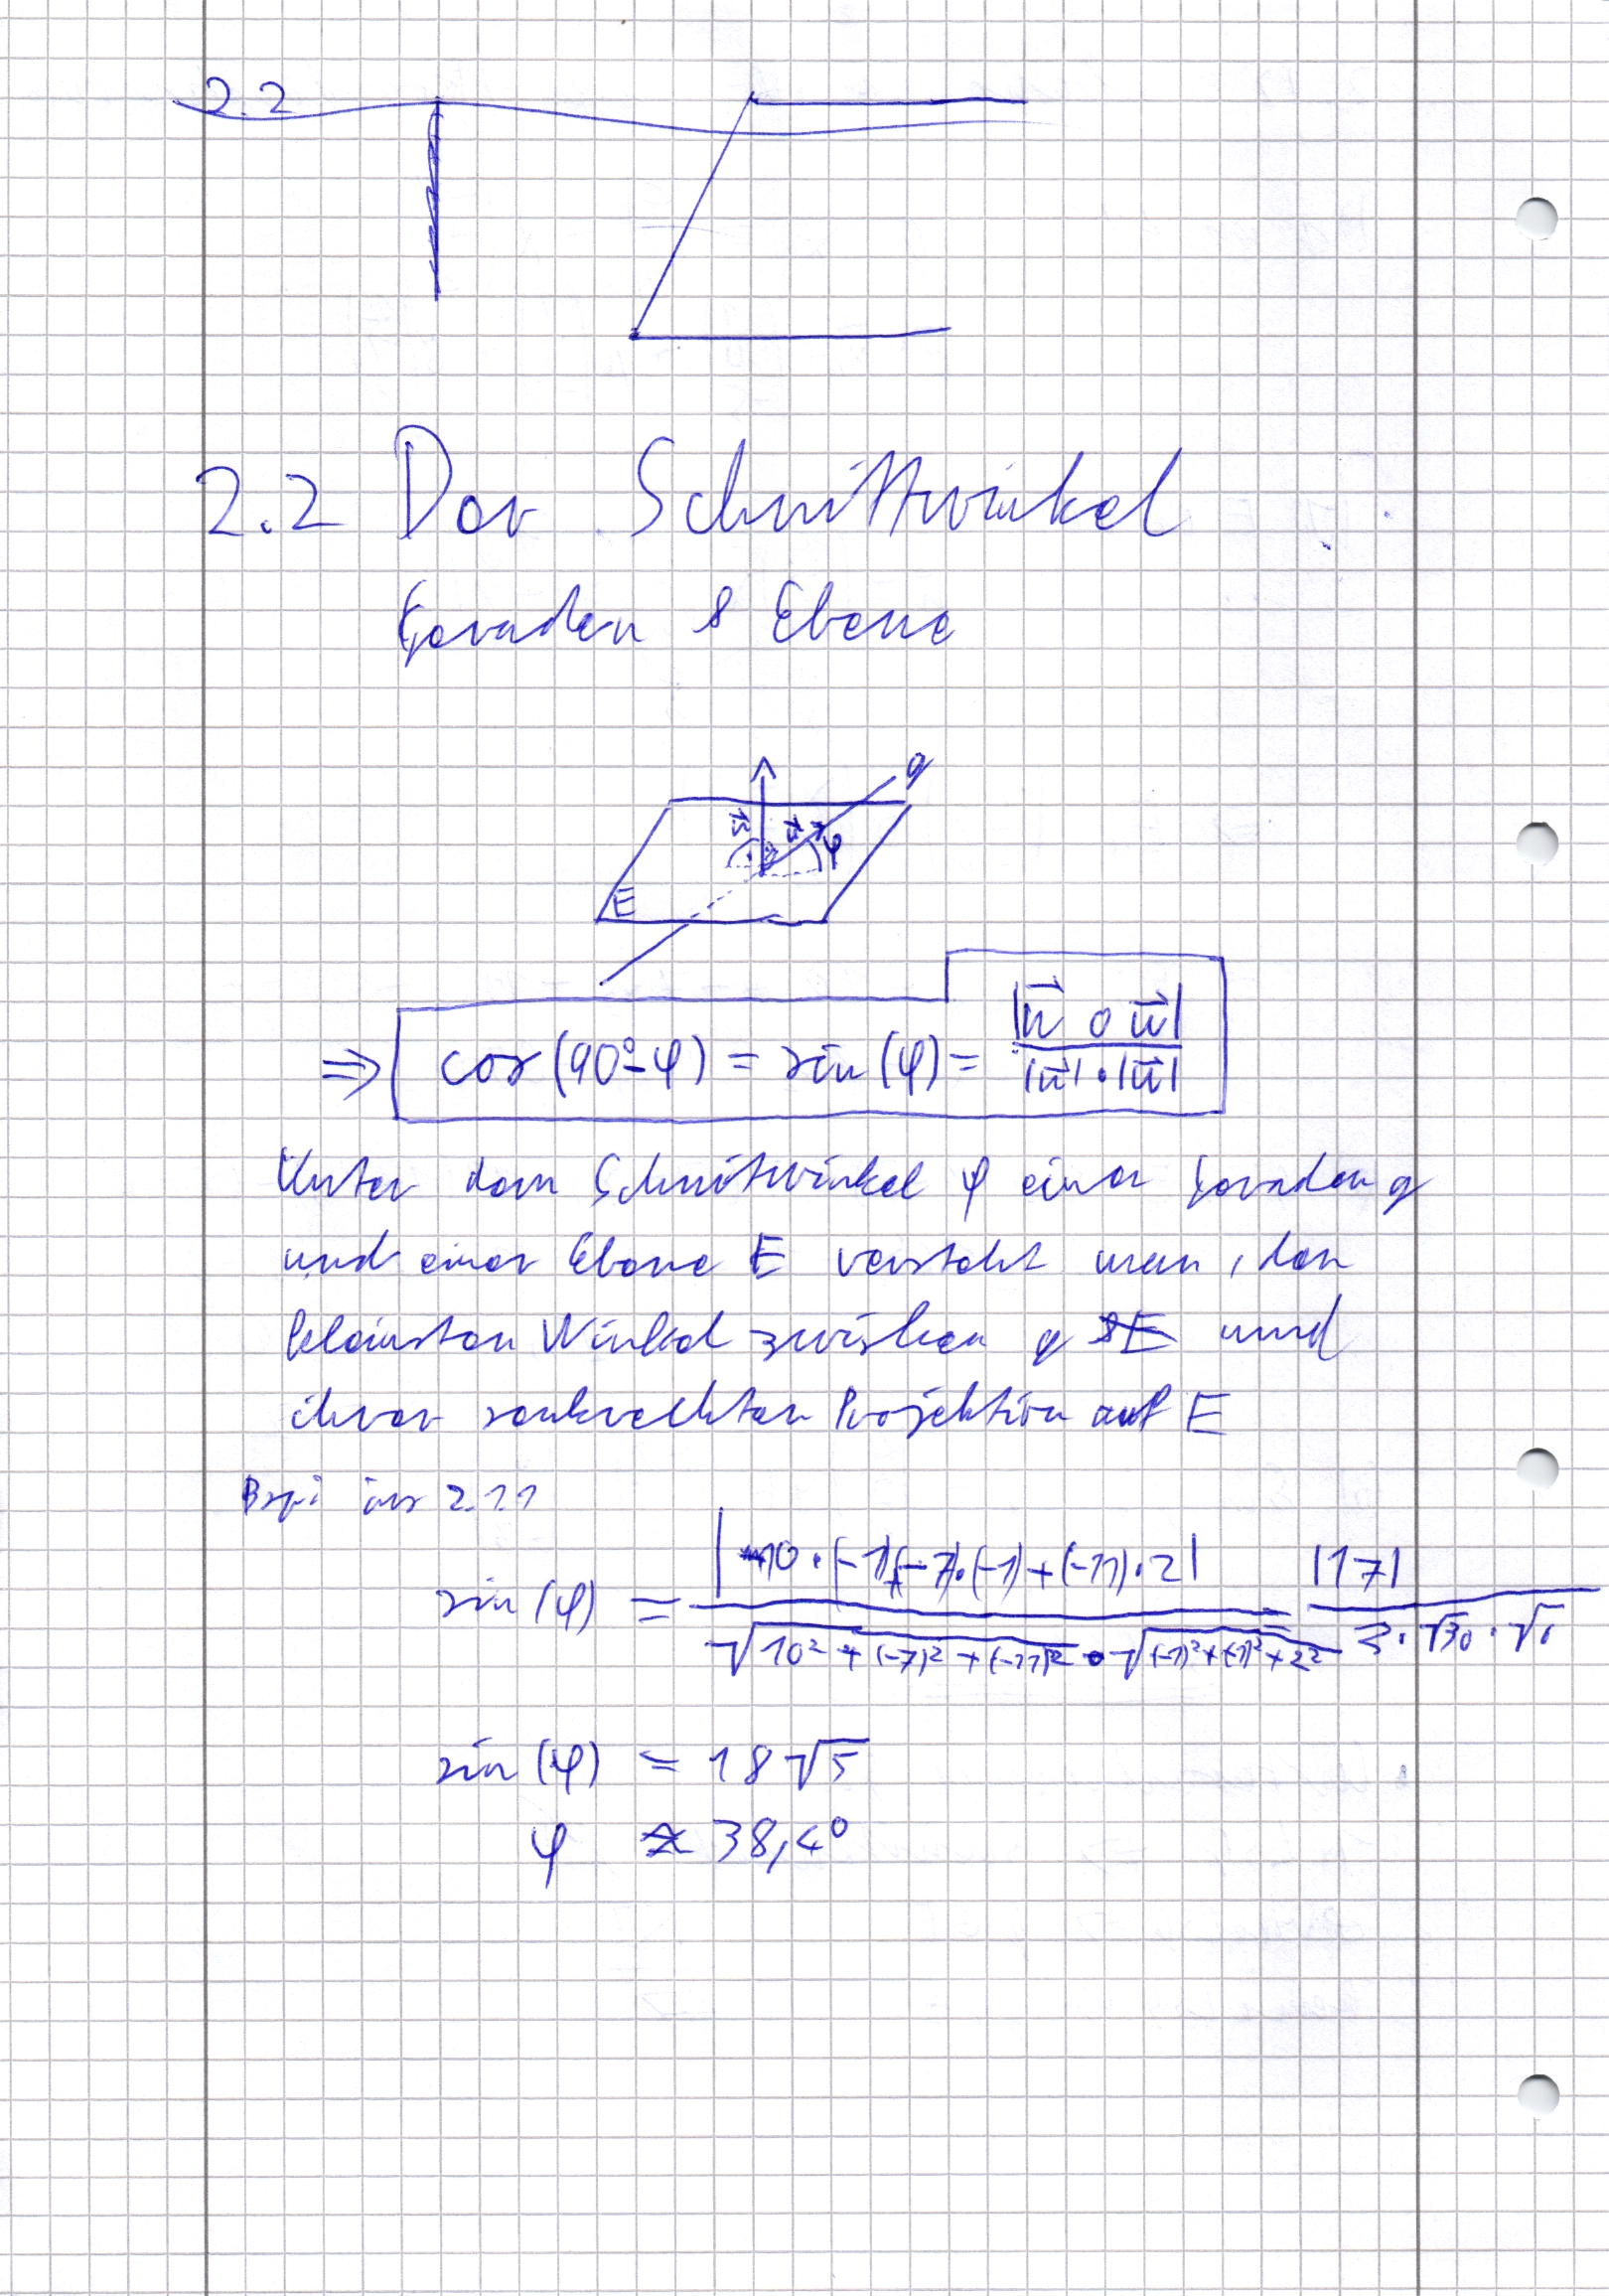 2.2
2.2 Der Schnittwinkel
Geraden & Ebene
g
n⃗ u⃗ φ
E
⇒ cos(90°-φ) = sin(φ) = |n⃗ ∘ u⃗| / |n⃗|·|u⃗|
Unter dem Schnittwinkel φ einer Geraden g
und einer Ebene E versteht man, den
kleinsten Winkel zwischen g &E und
ihrer senkrechten Projektion auf E
2.11
sin(φ) = |10·(-1)+(-7)·(-1)+(-11)·2| / √10²+(-7)²+(-11)² · √(-1)²+(-1)²+2² = |17| / 3·√30·√6
sin(φ) = 18√5
φ ≈ 38,4°